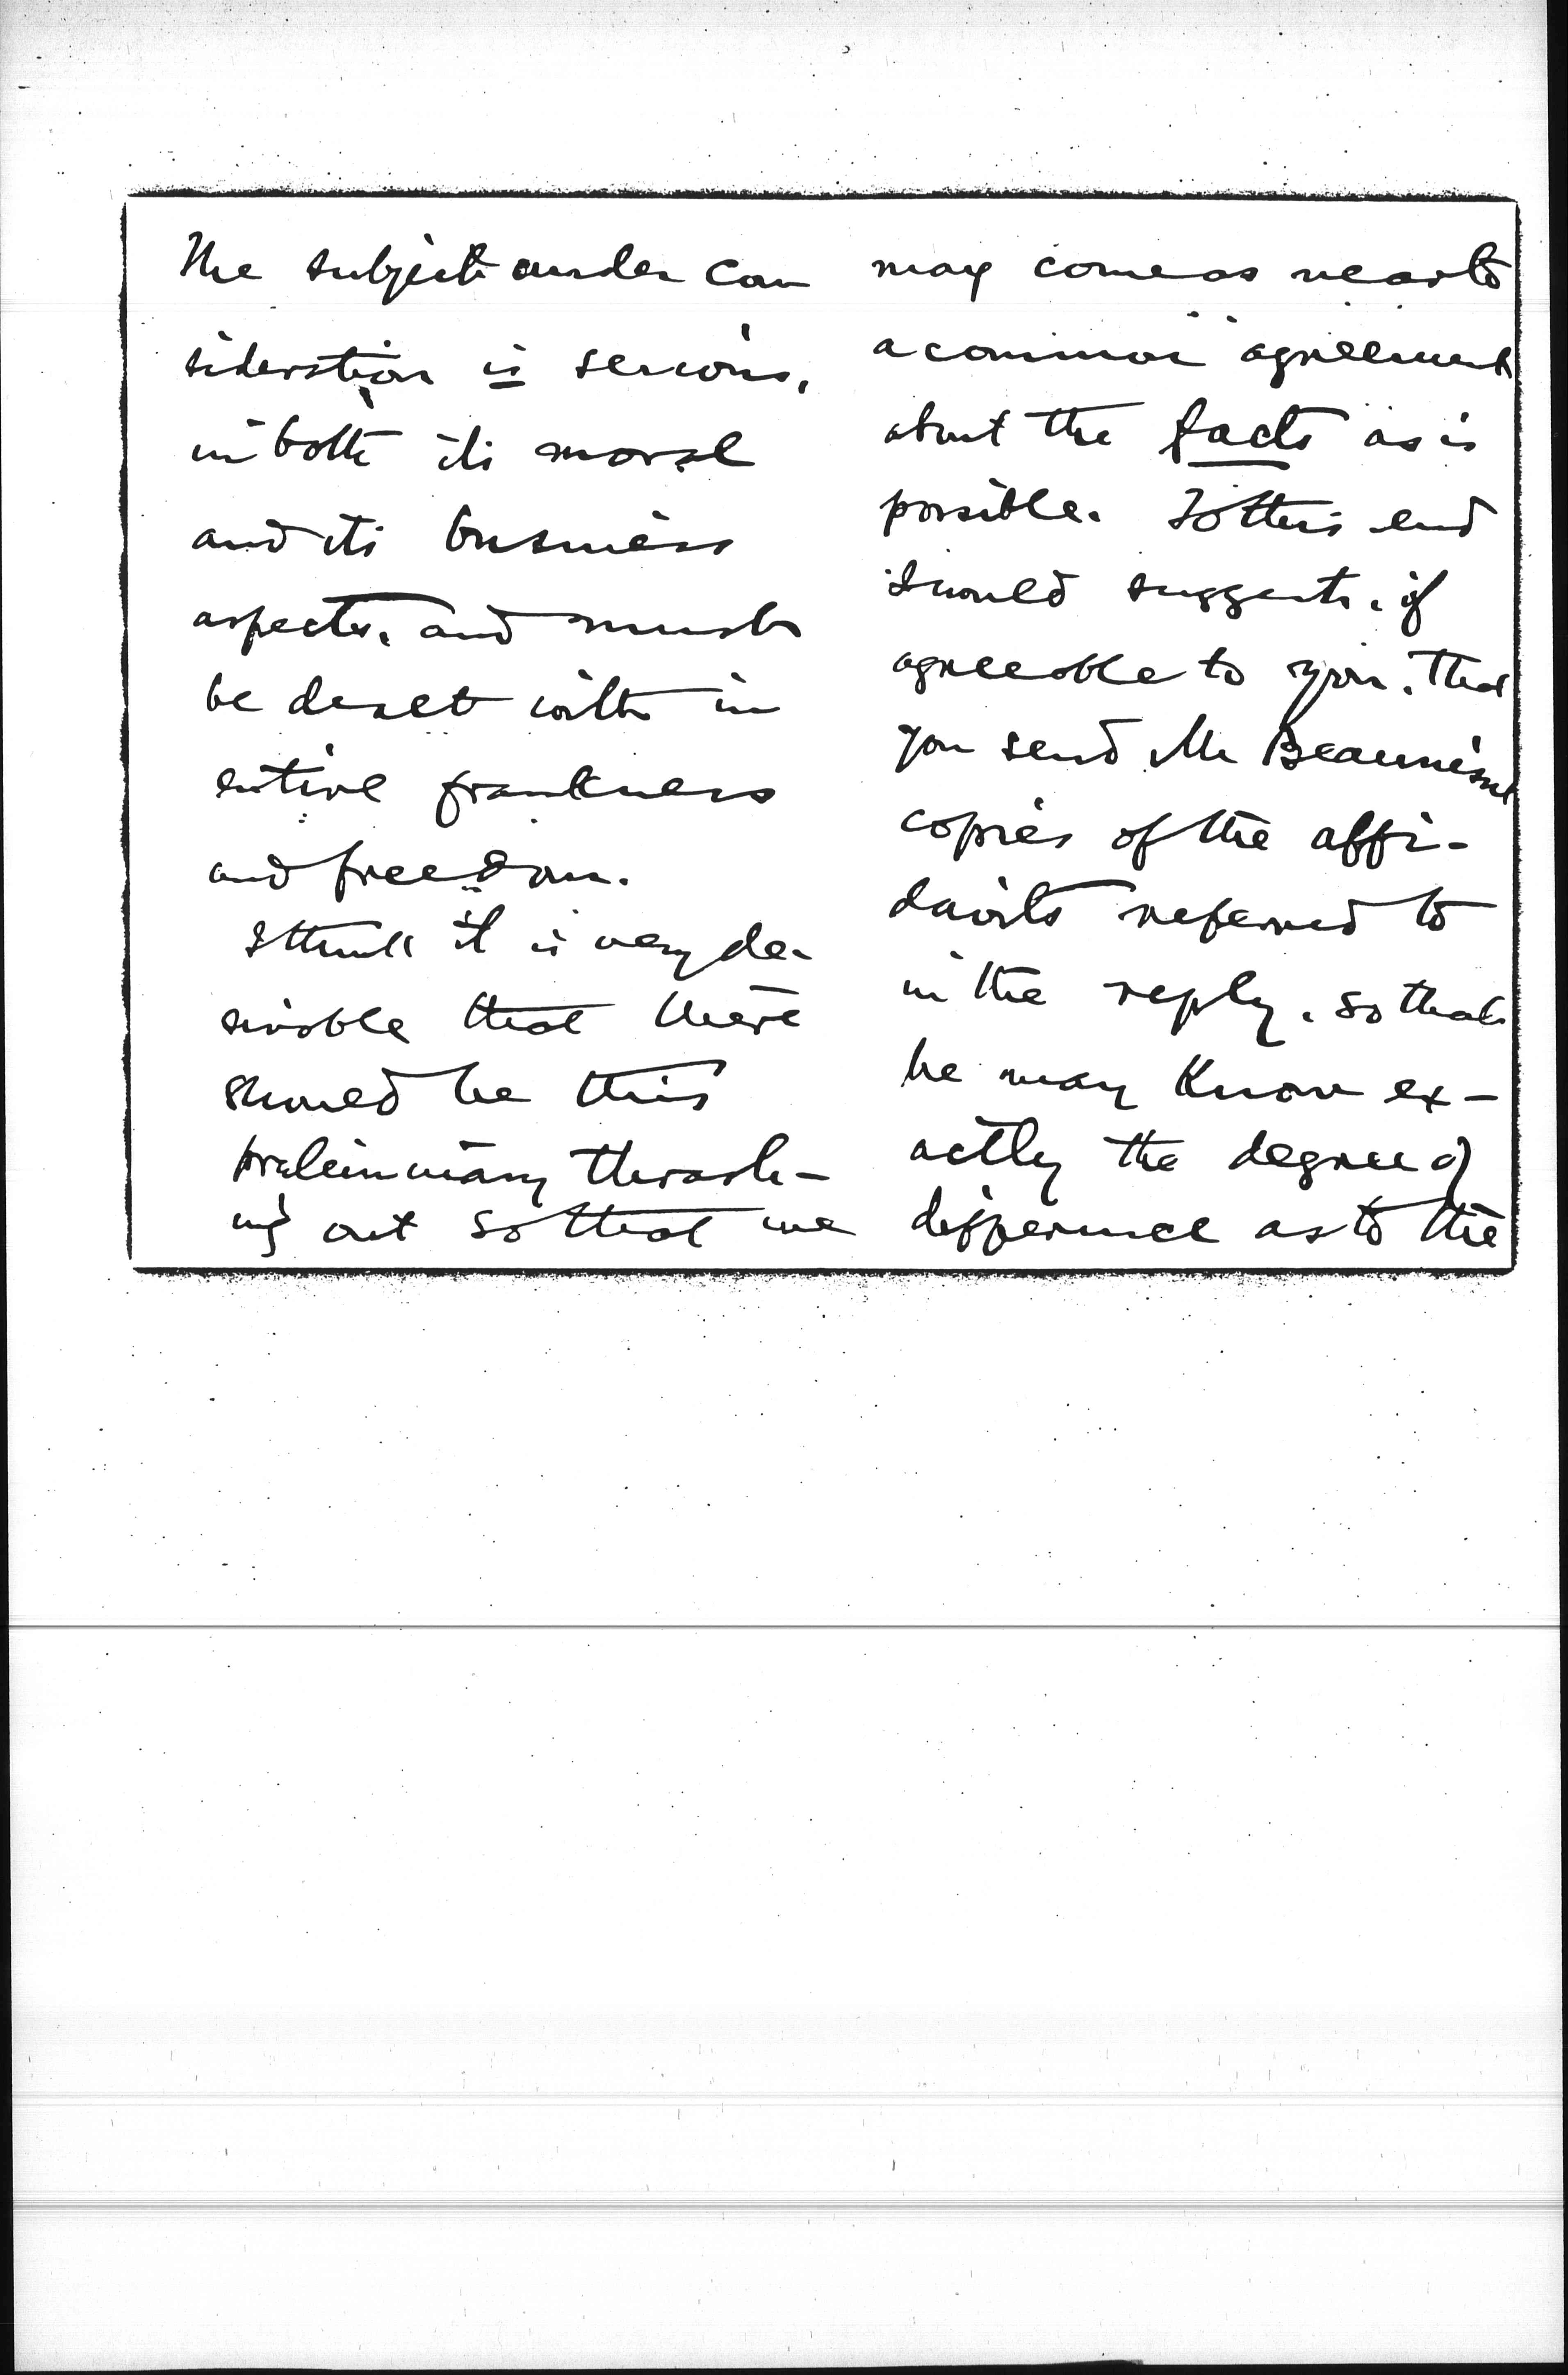 The subject under con
sideration is serious,
in both its moral
and its business
aspects, and must
be dealt with in
entire frankness
and freedom.
I think it is very de-
sirable that there
should be this
preliminary thrash-
ing out so that we
may come as near to
a common agreement
about the facts as is
possible. To this end
I would suggest, if
agreeable to you, that
you send Mr
copies of the affi-
davits referred to
in the reply, so that
he may know ex-
actly the degree of
difference as to the